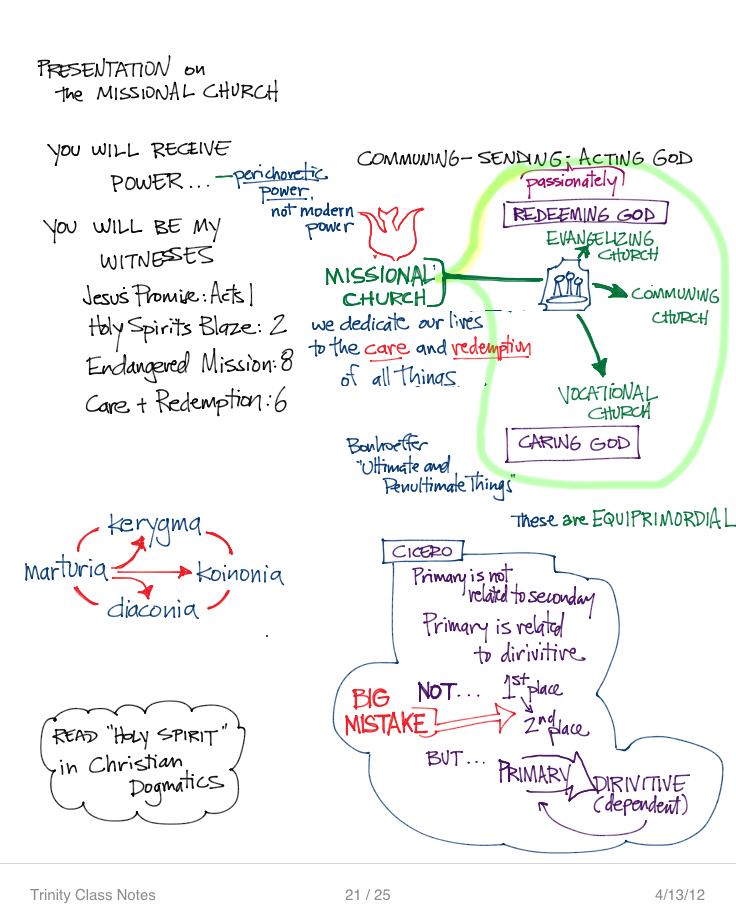 PRESENTATION on
the MISSIONAL CHURCH
YOU WILL RECEIVE
POWER... – perichoretic
power,
not modern
power
YOU WILL BE MY
WITNESSES
Jesus' Promise: Acts 1
Holy Spirits Blaze: 2
Endangered Mission: 8
Care + Redemption: 6
COMMUNING – SENDING; ACTING GOD
passionately
REDEEMING GOD
EVANGELIZING
CHURCH
MISSIONAL
CHURCH
COMMUNING
CHURCH
we dedicate our lives
to the care and redemption
of all Things.
VOCATIONAL
CHURCH
CARING GOD
Bonhoeffer
"Ultimate and
Penultimate Things"
These are EQUIPRIMORDIAL
kerygma
marturia
koinonia
diaconia
CICERO
Primary is not
related to seconday
Primary is related
to dirivitive
BIG
MISTAKE
NOT...
1st place
2nd place
BUT...
PRIMARY
DIRIVITIVE
(dependent)
READ "HOLY SPIRIT"
in Christian
Dogmatics
Trinity Class Notes
21 / 25
4/13/12